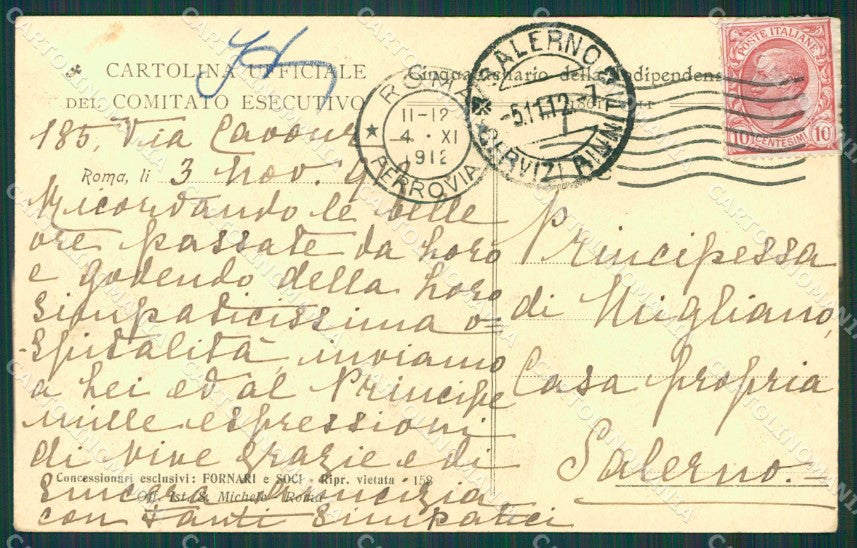 CARTOLINA UFFICIALE
DEL COMITATO ESECUTIVO
Cinquantenario della Indipendenza
185, Via Cavour
Roma, li 3 Nov. 9
Ricordando le belle
ore passate da loro
e godendo della loro
simpaticissima o-
spitalità, inviamo
a Lei ed al Principe
mille espressioni
di vive grazie e di
sincera amicizia
con tanti simpatici
Concessionari esclusivi: FORNARI e SOCI - Ripr. vietata - 158
Off. Ist. S. Michele - Roma
ROMA
11-12
4 · XI
1912
FERROVIA
SALERNO
5.11.12
SERVIZI RIUNITI
POSTE ITALIANE
10 CENTESIMI 10
Principessa
di Migliano,
Casa propria
Salerno.-
CARTOLINOMANIA